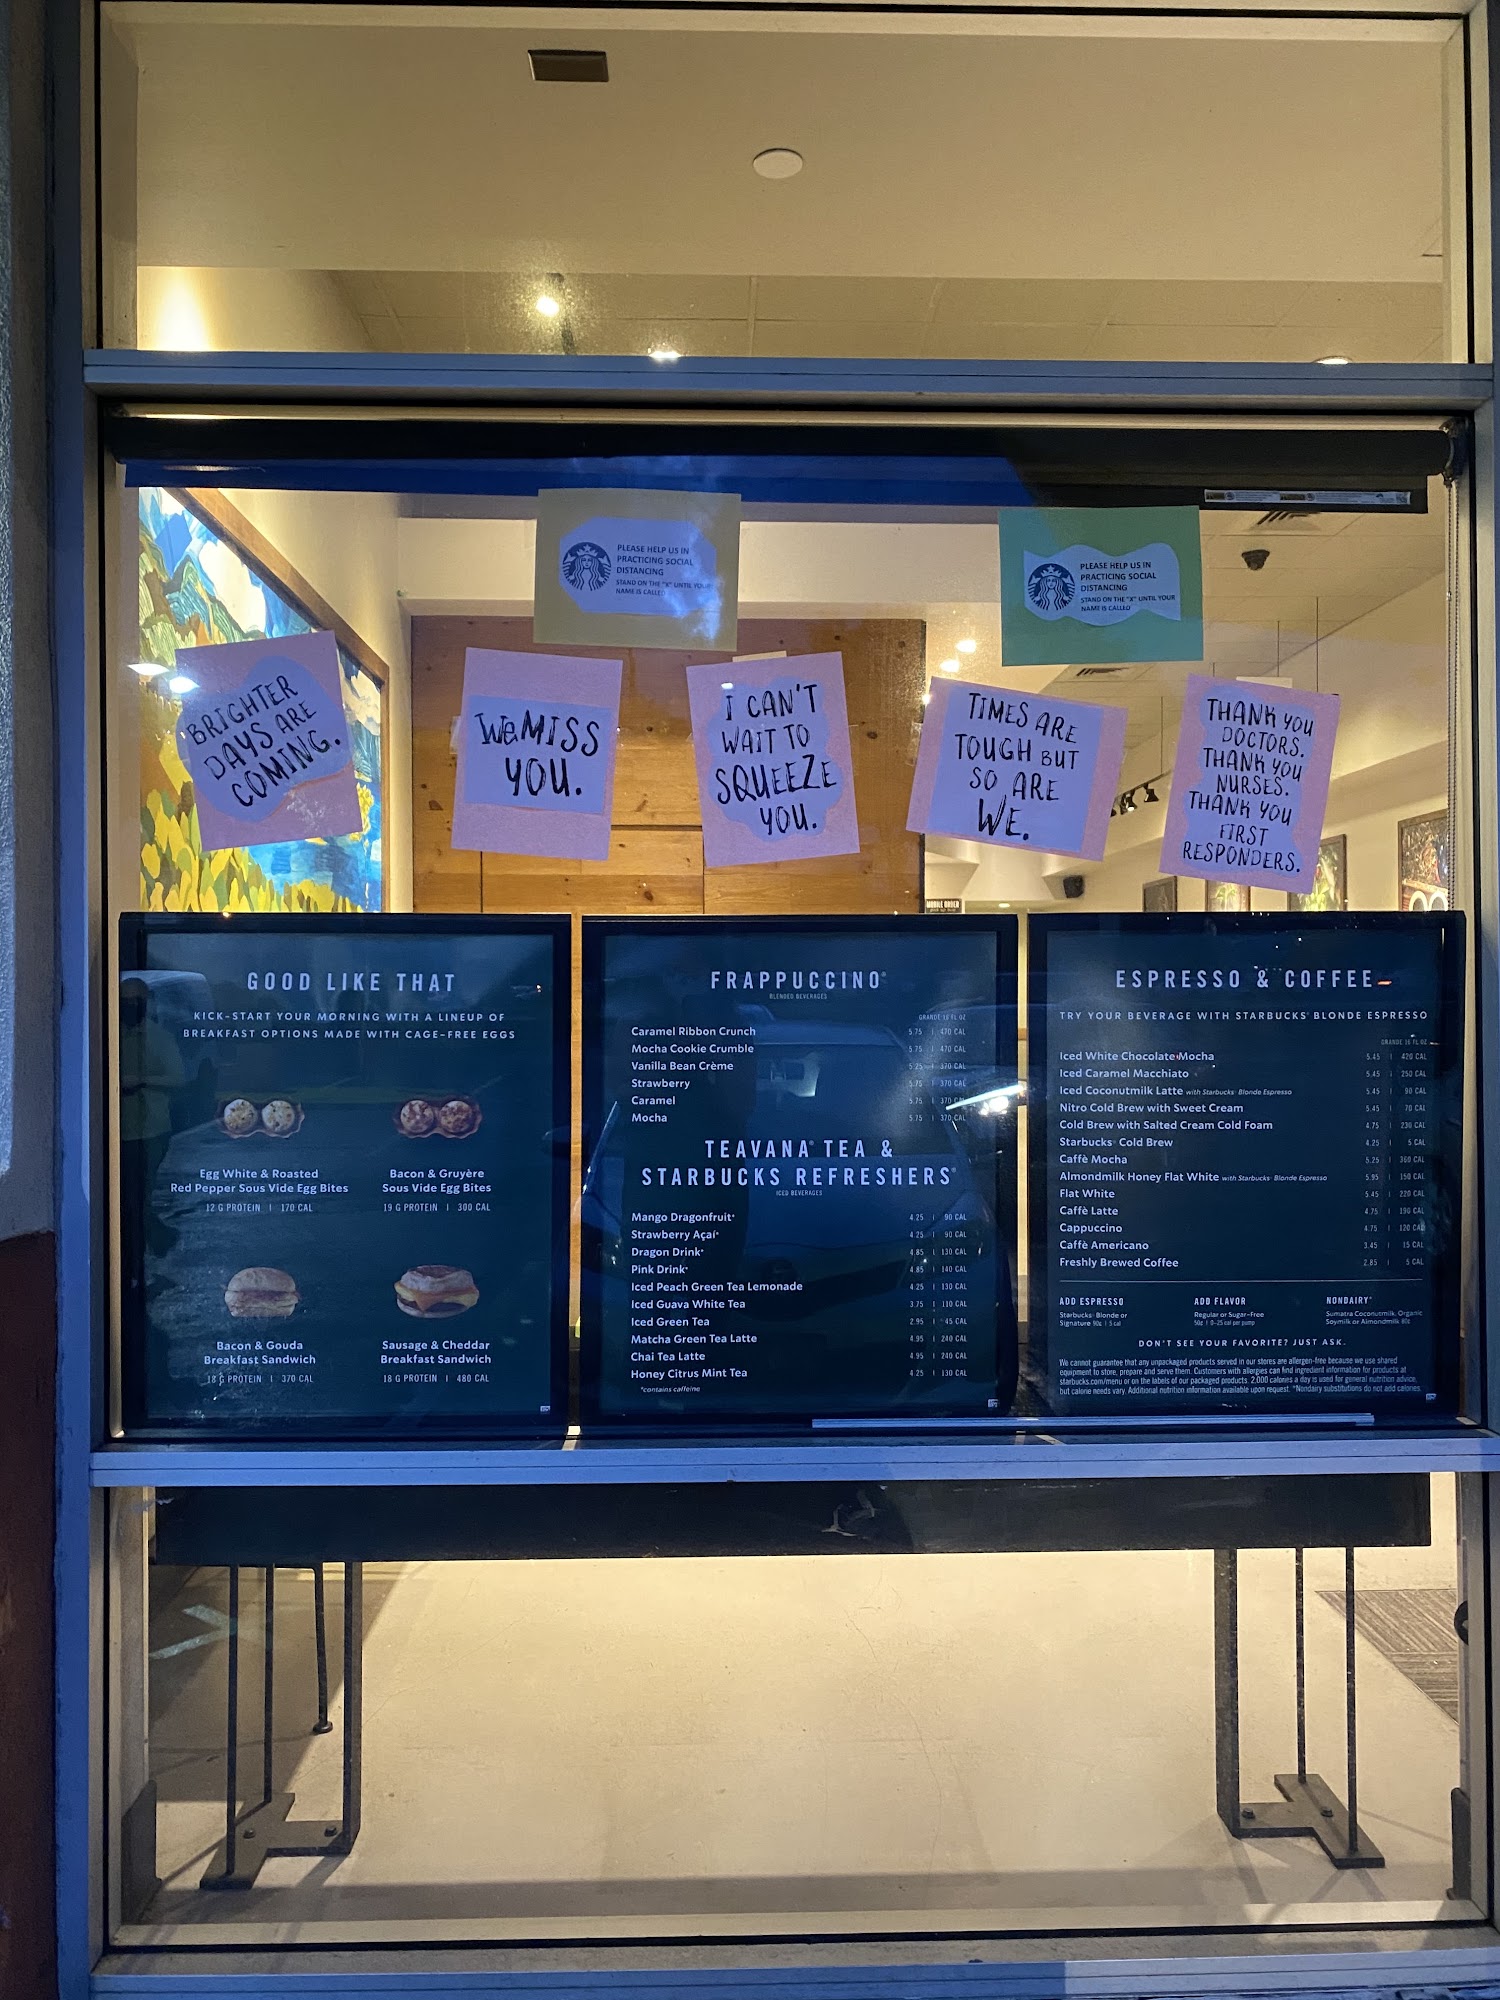 PLEASE HELP US IN
PRACTICING SOCIAL
DISTANCING
STAND ON THE "X" UNTIL YOUR
NAME IS CALLED
PLEASE HELP US IN
PRACTICING SOCIAL
DISTANCING
STAND ON THE "X" UNTIL YOUR
NAME IS CALLED
BRIGHTER
DAYS ARE
COMING.
We MISS
YOU.
I CAN'T
WAIT TO
SQUEEZE
YOU.
TIMES ARE
TOUGH BUT
SO ARE
WE.
THANK YOU
DOCTORS.
THANK YOU
NURSES.
THANK YOU
FIRST
RESPONDERS.
MOBILE ORDER
GOOD LIKE THAT
KICK-START YOUR MORNING WITH A LINEUP OF
BREAKFAST OPTIONS MADE WITH CAGE-FREE EGGS
Egg White & Roasted
Red Pepper Sous Vide Egg Bites
12 G PROTEIN | 170 CAL
Bacon & Gruyère
Sous Vide Egg Bites
19 G PROTEIN | 300 CAL
Bacon & Gouda
Breakfast Sandwich
18 G PROTEIN | 370 CAL
Sausage & Cheddar
Breakfast Sandwich
18 G PROTEIN | 480 CAL
FRAPPUCCINO®
BLENDED BEVERAGES
GRANDE 16 FL OZ
Caramel Ribbon Crunch 5.75 | 470 CAL
Mocha Cookie Crumble 5.75 | 470 CAL
Vanilla Bean Crème 5.25 | 370 CAL
Strawberry 5.75 | 370 CAL
Caramel 5.75 | 370 CAL
Mocha 5.75 | 370 CAL
TEAVANA® TEA &
STARBUCKS REFRESHERS®
ICED BEVERAGES
Mango Dragonfruit* 4.25 | 90 CAL
Strawberry Açaí* 4.25 | 90 CAL
Dragon Drink* 4.85 | 130 CAL
Pink Drink* 4.85 | 140 CAL
Iced Peach Green Tea Lemonade 4.25 | 130 CAL
Iced Guava White Tea 3.75 | 110 CAL
Iced Green Tea 2.95 | 45 CAL
Matcha Green Tea Latte 4.95 | 240 CAL
Chai Tea Latte 4.95 | 240 CAL
Honey Citrus Mint Tea 4.25 | 130 CAL
*contains caffeine
ESPRESSO & COFFEE
TRY YOUR BEVERAGE WITH STARBUCKS® BLONDE ESPRESSO
GRANDE 16 FL OZ
Iced White Chocolate Mocha 5.45 | 420 CAL
Iced Caramel Macchiato 5.45 | 250 CAL
Iced Coconutmilk Latte with Starbucks® Blonde Espresso 5.45 | 90 CAL
Nitro Cold Brew with Sweet Cream 5.45 | 70 CAL
Cold Brew with Salted Cream Cold Foam 4.75 | 230 CAL
Starbucks® Cold Brew 4.25 | 5 CAL
Caffè Mocha 5.25 | 360 CAL
Almondmilk Honey Flat White with Starbucks® Blonde Espresso 5.95 | 150 CAL
Flat White 5.45 | 220 CAL
Caffè Latte 4.75 | 190 CAL
Cappuccino 4.75 | 120 CAL
Caffè Americano 3.45 | 15 CAL
Freshly Brewed Coffee 2.85 | 5 CAL
ADD ESPRESSO
Starbucks® Blonde or
Signature 90¢ | 5 cal
ADD FLAVOR
Regular or Sugar-Free
50¢ | 0-25 cal per pump
NONDAIRY*
Sumatra Coconutmilk, Organic
Soymilk or Almondmilk 80¢
DON'T SEE YOUR FAVORITE? JUST ASK.
We cannot guarantee that any unpackaged products served in our stores are allergen-free because we use shared
equipment to store, prepare and serve them. Customers with allergies can find ingredient information for products at
starbucks.com/menu or on the labels of our packaged products. 2,000 calories a day is used for general nutrition advice,
but calorie needs vary. Additional nutrition information available upon request. *Nondairy substitutions do not add calories.